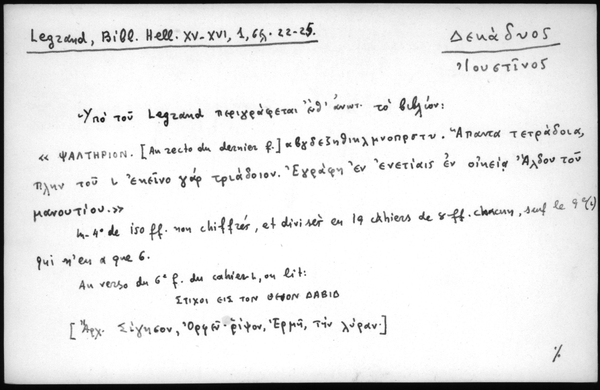 Legrand, Bibl. Hell. XV-XVI, 1, σελ. 22-25.
Δεκάδυος
Ἰουστῖνος
Ὑπὸ τοῦ Legrand περιγράφεται ἔνθ' ἀνωτ. τὸ βιβλίον:
« ΨΑΛΤΗΡΙΟΝ. [Au recto du dernier f.] αβγδεζηθικλμνοπρστυ. Ἅπαντα τετράδια,
πλὴν τοῦ ι ἐκεῖνο γάρ τριάδιον. Ἐγράφη ἐν ἐνετίαις ἐν οἰκείᾳ Ἄλδου τοῦ
μανουτίου.»
In-4º de 150 ff. non chiffrés, et divisés en 19 cahiers de 8 ff. chacun, sauf le 9e (ι)
qui n'en a que 6.
Au verso du 6e f. du cahier ι, on lit:
ΣΤΙΧΟΙ ΕΙΣ ΤΟΝ ΘΕΙΟΝ ΔΑΒΙΔ
[Ἀρχ. Σίγησον, Ὀρφεῦ· ῥίψον, Ἑρμῆ, τὴν λύραν.]